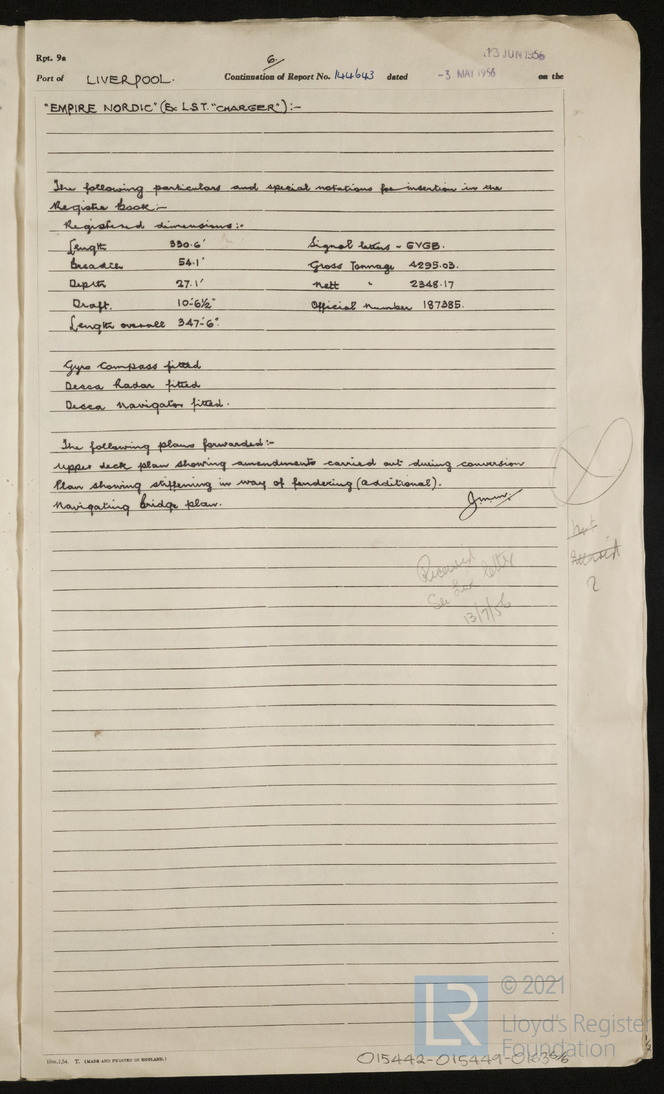 Rpt. 9a
6/
13 JUN 1956
Port of LIVERPOOL. Continuation of Report No. 144643 dated -3 MAY 1956 on the
"EMPIRE NORDIC" (Ex L.S.T. "CHARGER") :-
The following particulars and special notations for insertion in the
Register Book :-
Registered dimensions :-
Length 330.6' Signal letters - GVGB.
Breadth 54.1' Gross Tonnage 4295.03.
Depth 27.1' Nett " 2348.17
Draft. 10'-6½" Official Number 187385.
Length overall 347'-6".
Gyro Compass fitted
Decca Radar fitted
Decca Navigator fitted.
The following plans forwarded :-
Upper deck plan showing amendments carried out during conversion
Plan showing stiffening in way of fendering (additional).
Navigating Bridge plan.
Received
See letter
13/7/56
not
2
10m,1,54. T. (MADE AND PRINTED IN ENGLAND.)
LR © 2021
Lloyd's Register
Foundation
015442-015449-0163 6/6